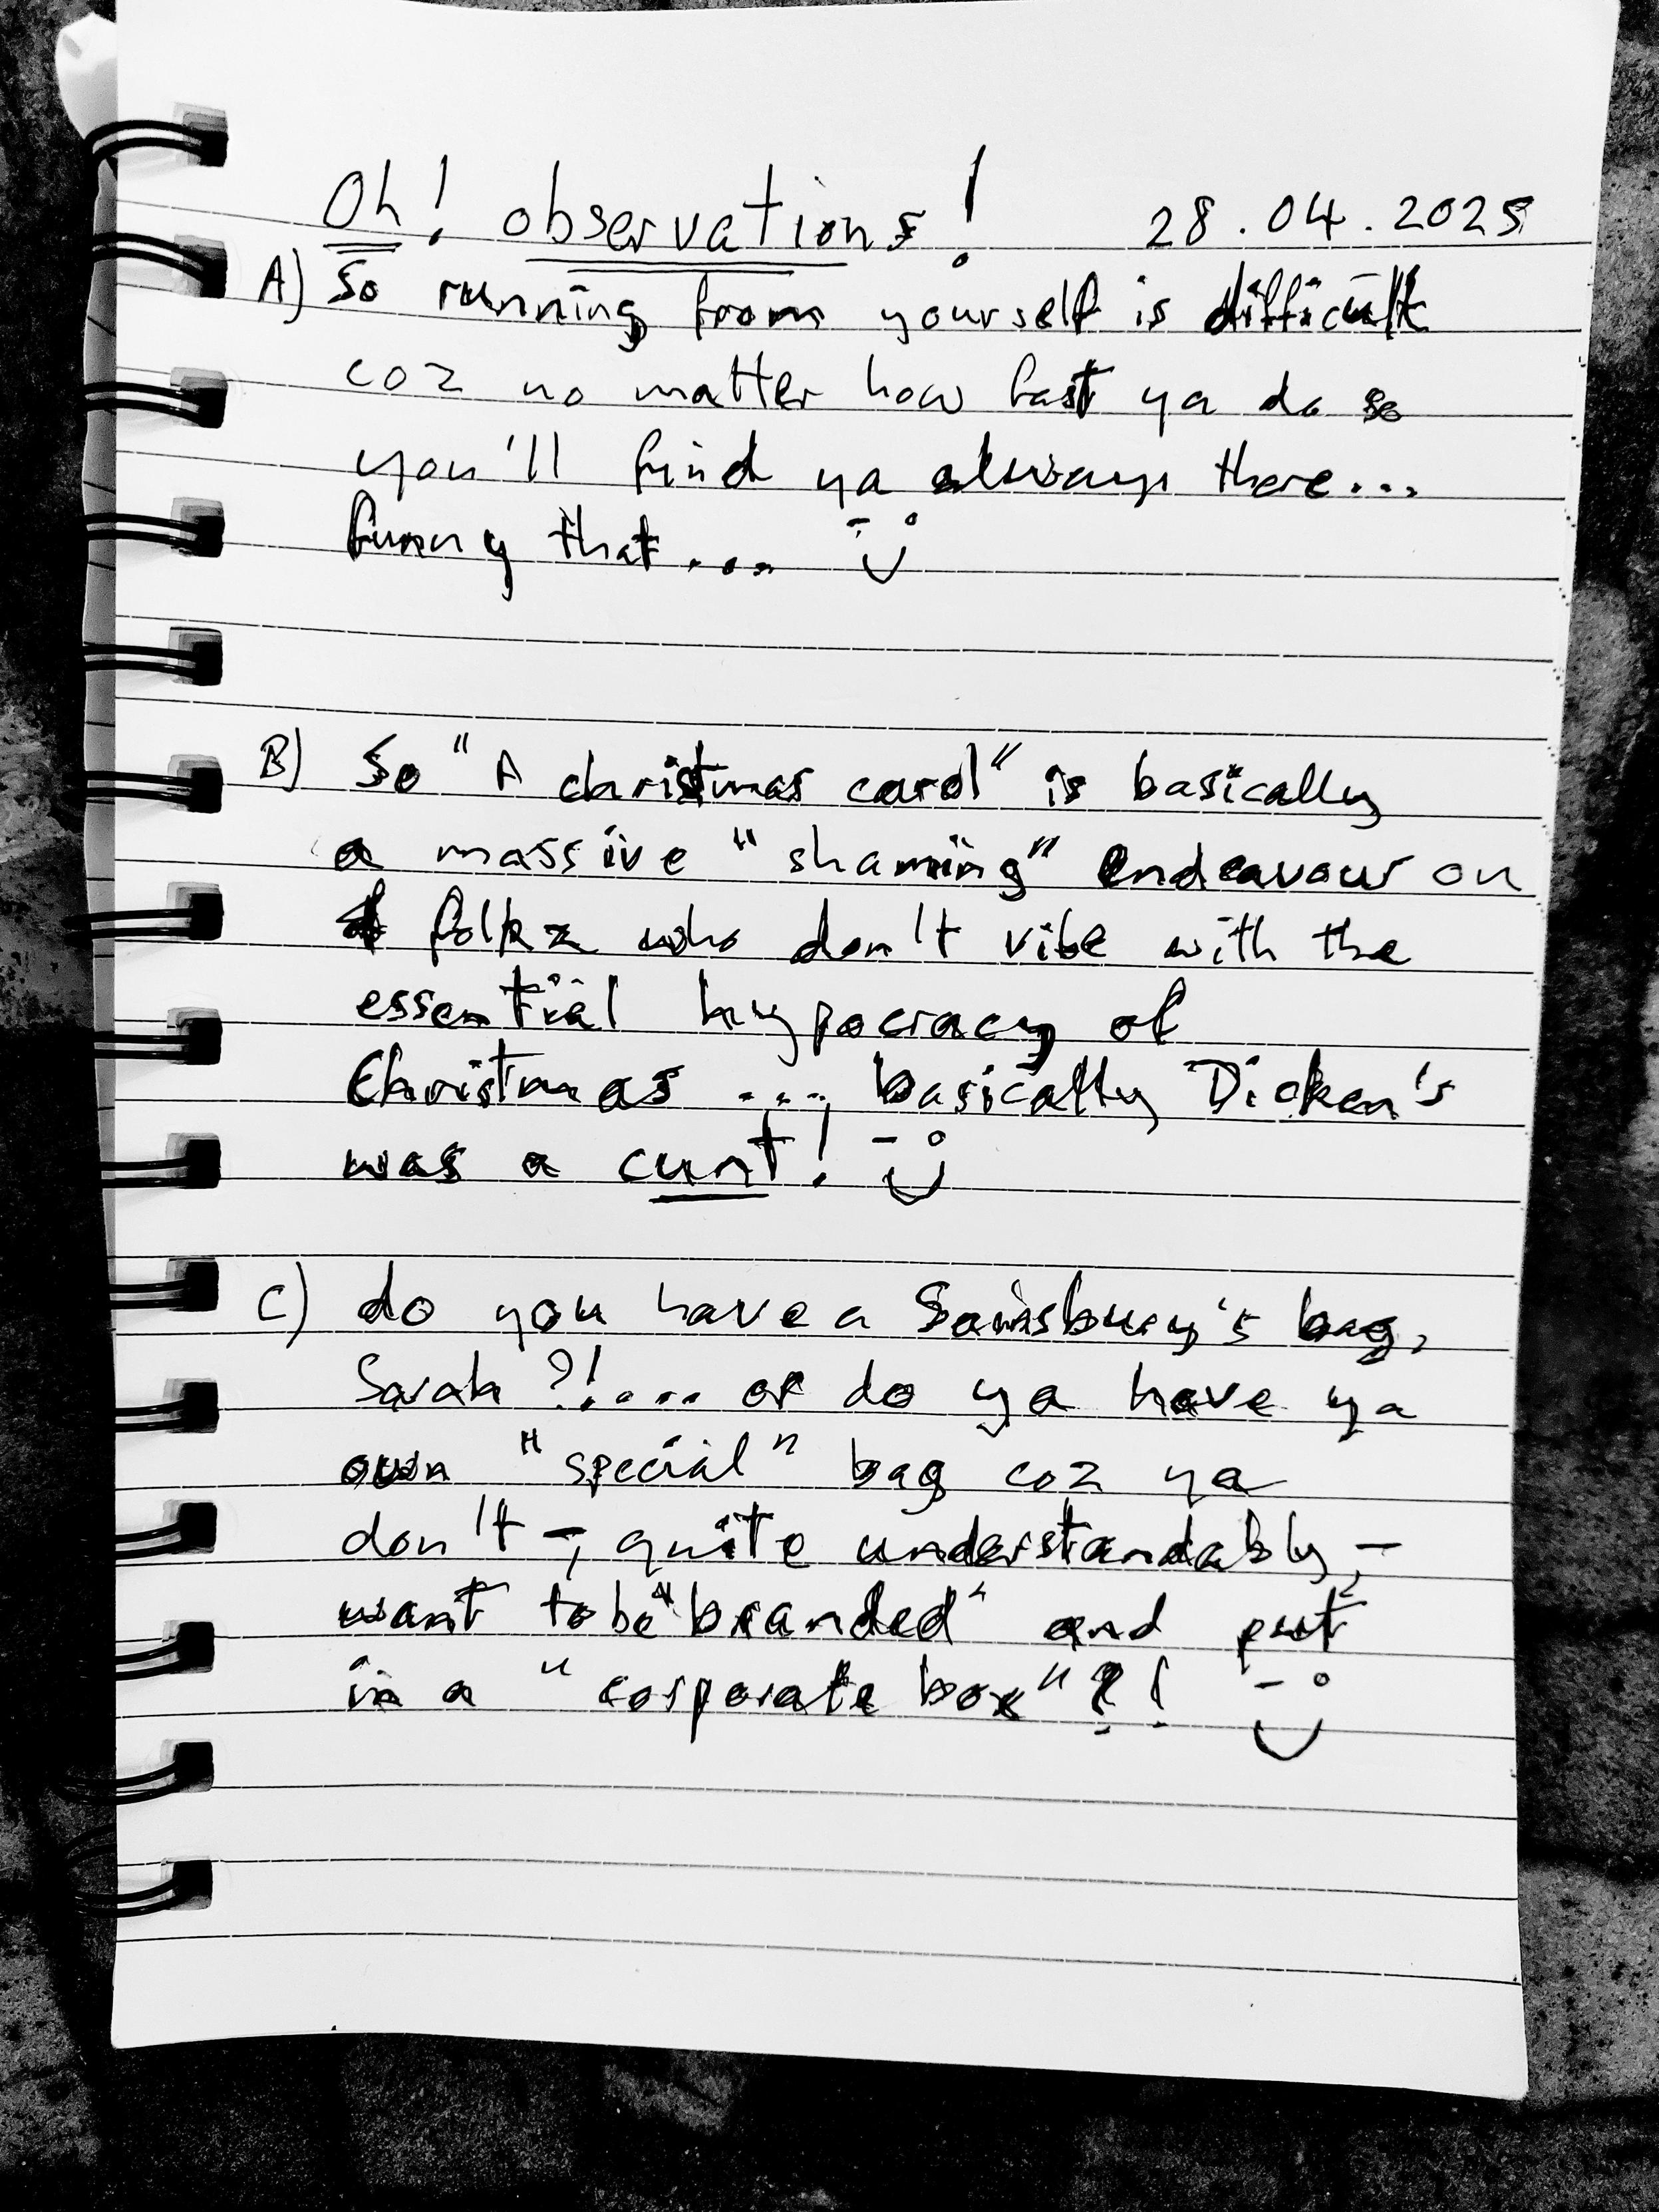 Oh! observations! 28.04.2025
A) So running from yourself is difficult
coz no matter how fast ya do so
you'll find ya always there...
funny that....
B) So "A christmas carol" is basically
a massive "shaming" endeavour on
folkz who don't vibe with the
essential hypocracy of
Christmas ..., basically Dicken's
was a cunt!
C) do you have a Sainsbury's bag,
Sarah ?!.... or do ya have ya
own "special" bag coz ya
don't -, quite understandably, -
want to be "branded" and put
in a "corporate box"?!